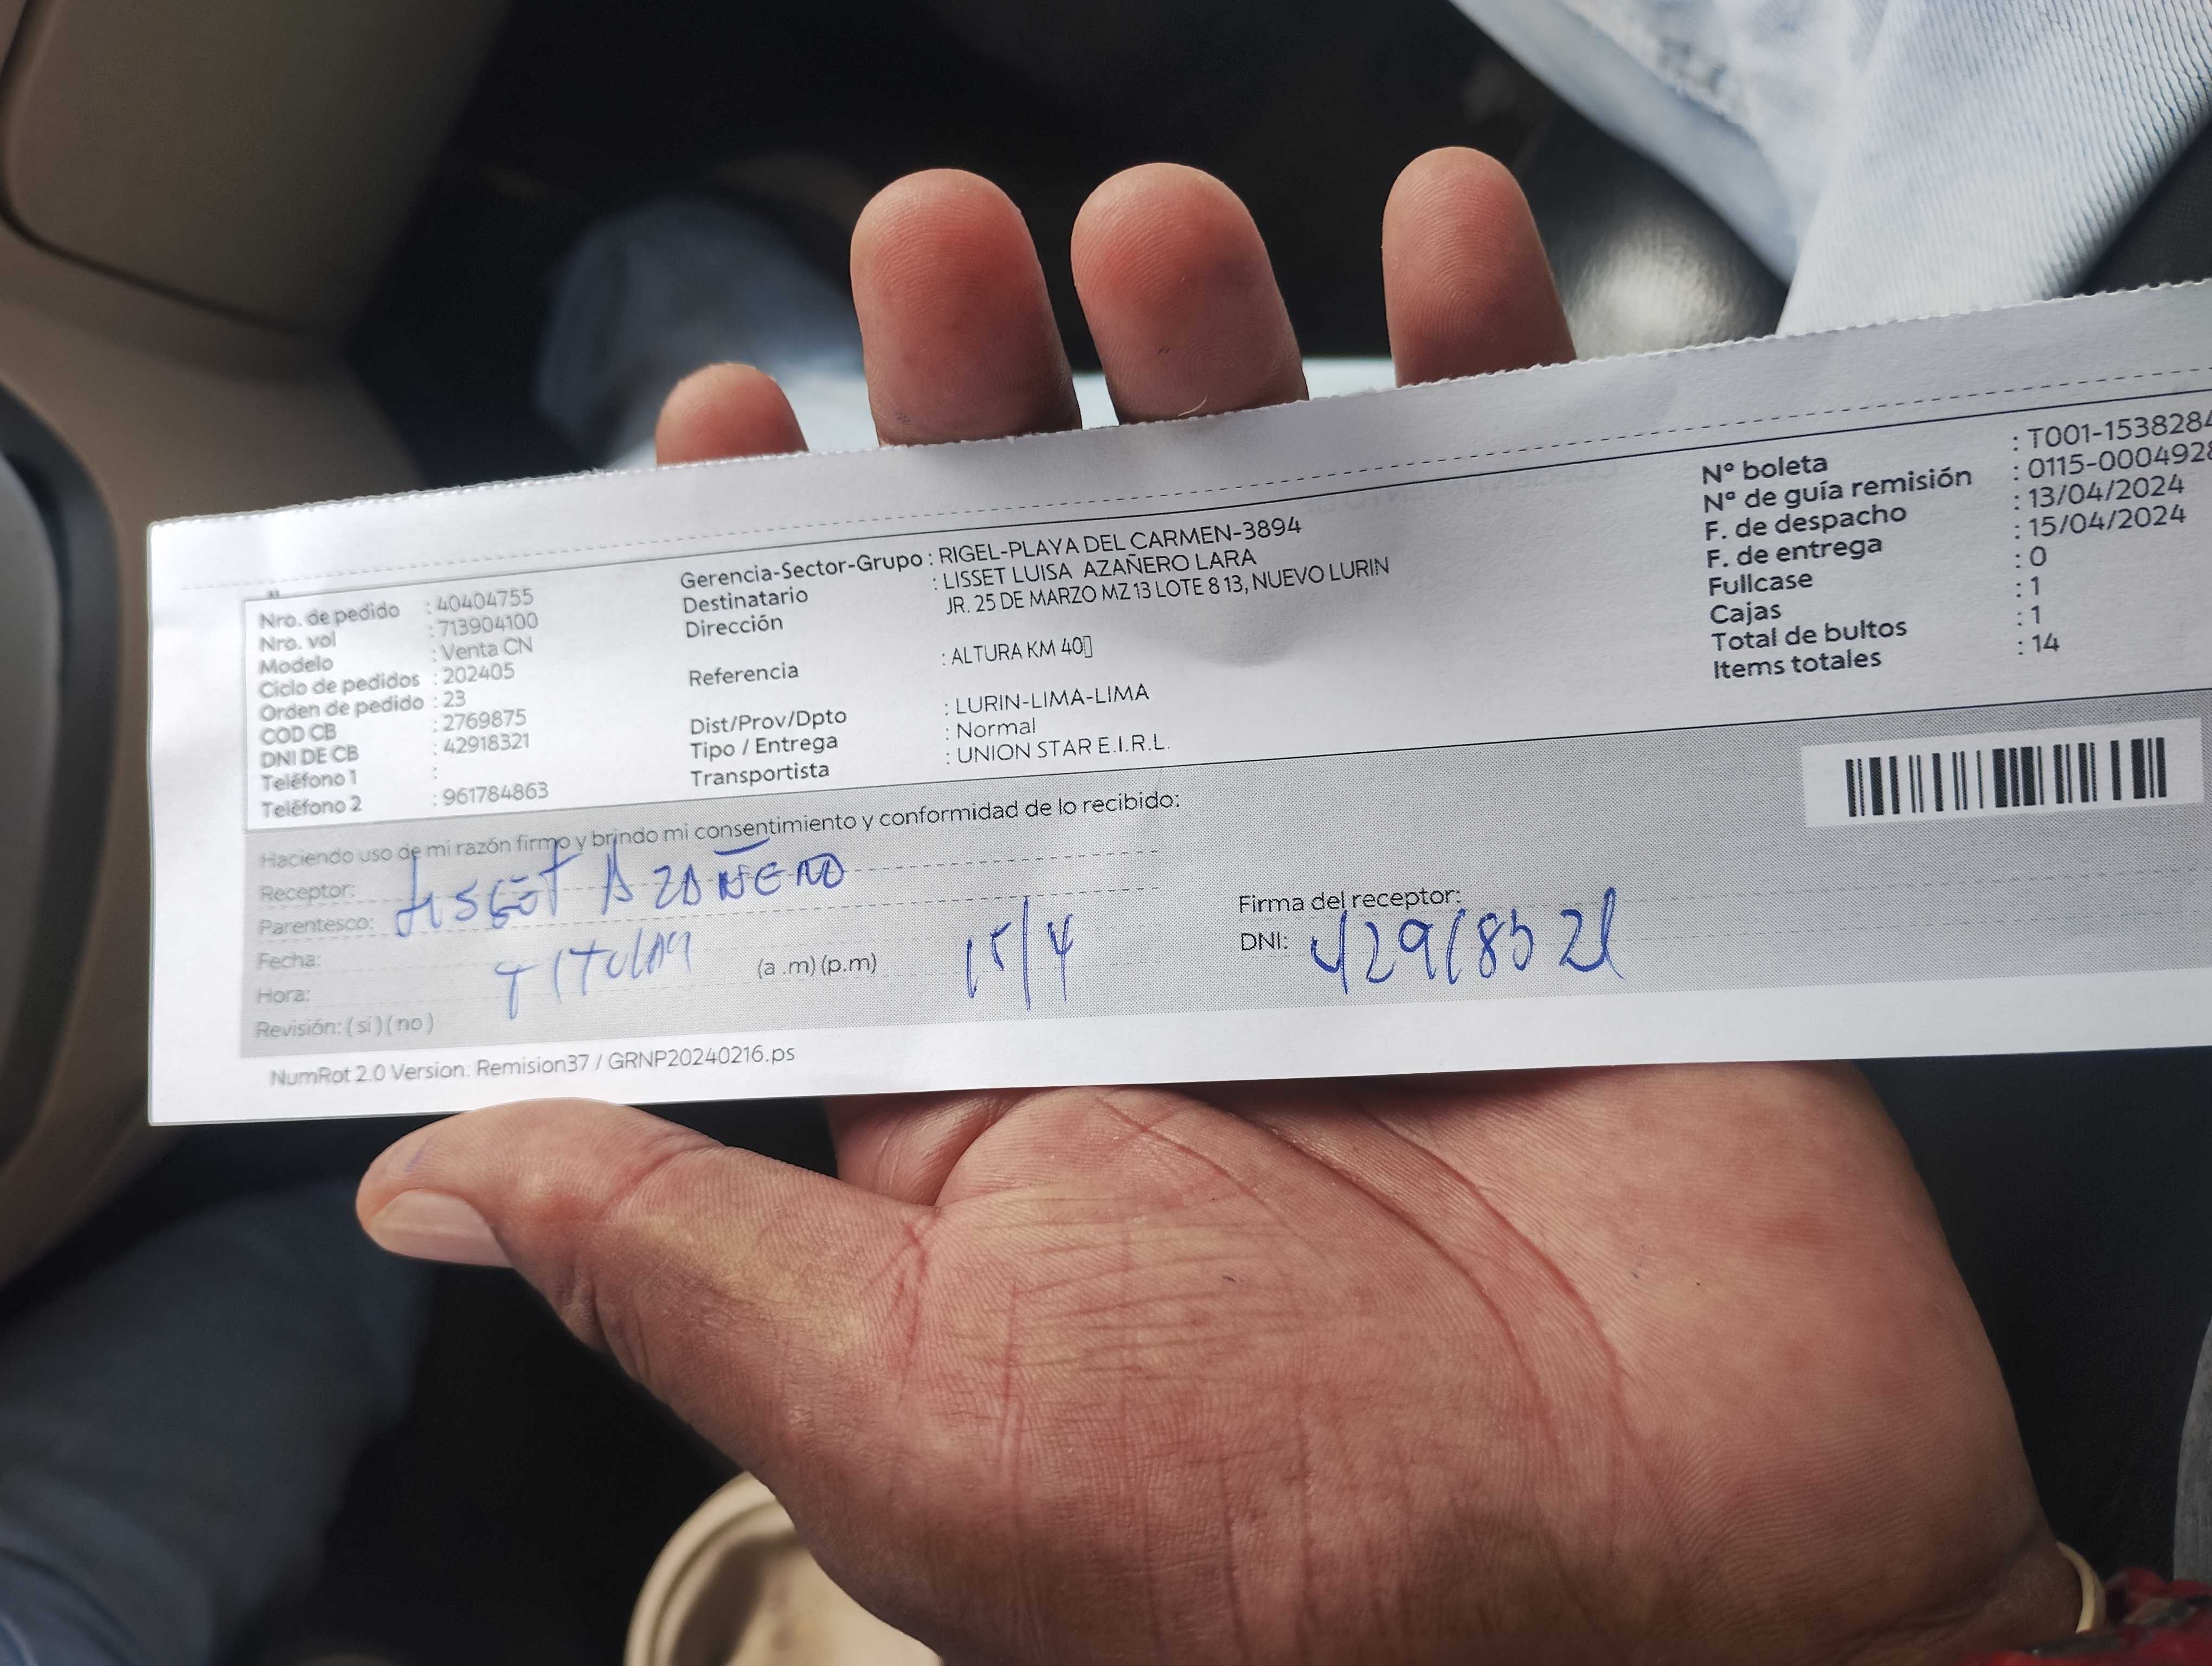 Nro. de pedido : 40404755
Nro. vol : 713904100
Modelo : Venta CN
Ciclo de pedidos : 202405
Orden de pedido : 23
COD CB : 2769875
DNI DE CB : 42918321
Teléfono 1 :
Teléfono 2 : 961784863
Gerencia-Sector-Grupo : RIGEL-PLAYA DEL CARMEN-3894
Destinatario : LISSET LUISA AZAÑERO LARA
Dirección JR. 25 DE MARZO MZ 13 LOTE 8 13, NUEVO LURIN
Referencia : ALTURA KM 40
Dist/Prov/Dpto : LURIN-LIMA-LIMA
Tipo / Entrega : Normal
Transportista : UNION STAR E.I.R.L.
Nº boleta : T001-1538284
Nº de guía remisión : 0115-0004928
F. de despacho : 13/04/2024
F. de entrega : 15/04/2024
Fullcase : 0
Cajas : 1
Total de bultos : 1
Items totales : 14
Haciendo uso de mi razón firmo y brindo mi consentimiento y conformidad de lo recibido:
Receptor: LISSET AZAÑERO
Parentesco: TITULAR
Fecha: 15/4
Hora: (a .m) (p.m)
Revisión: ( si ) ( no )
Firma del receptor:
DNI: 42918321
NumRot 2.0 Version: Remision37 / GRNP20240216.ps